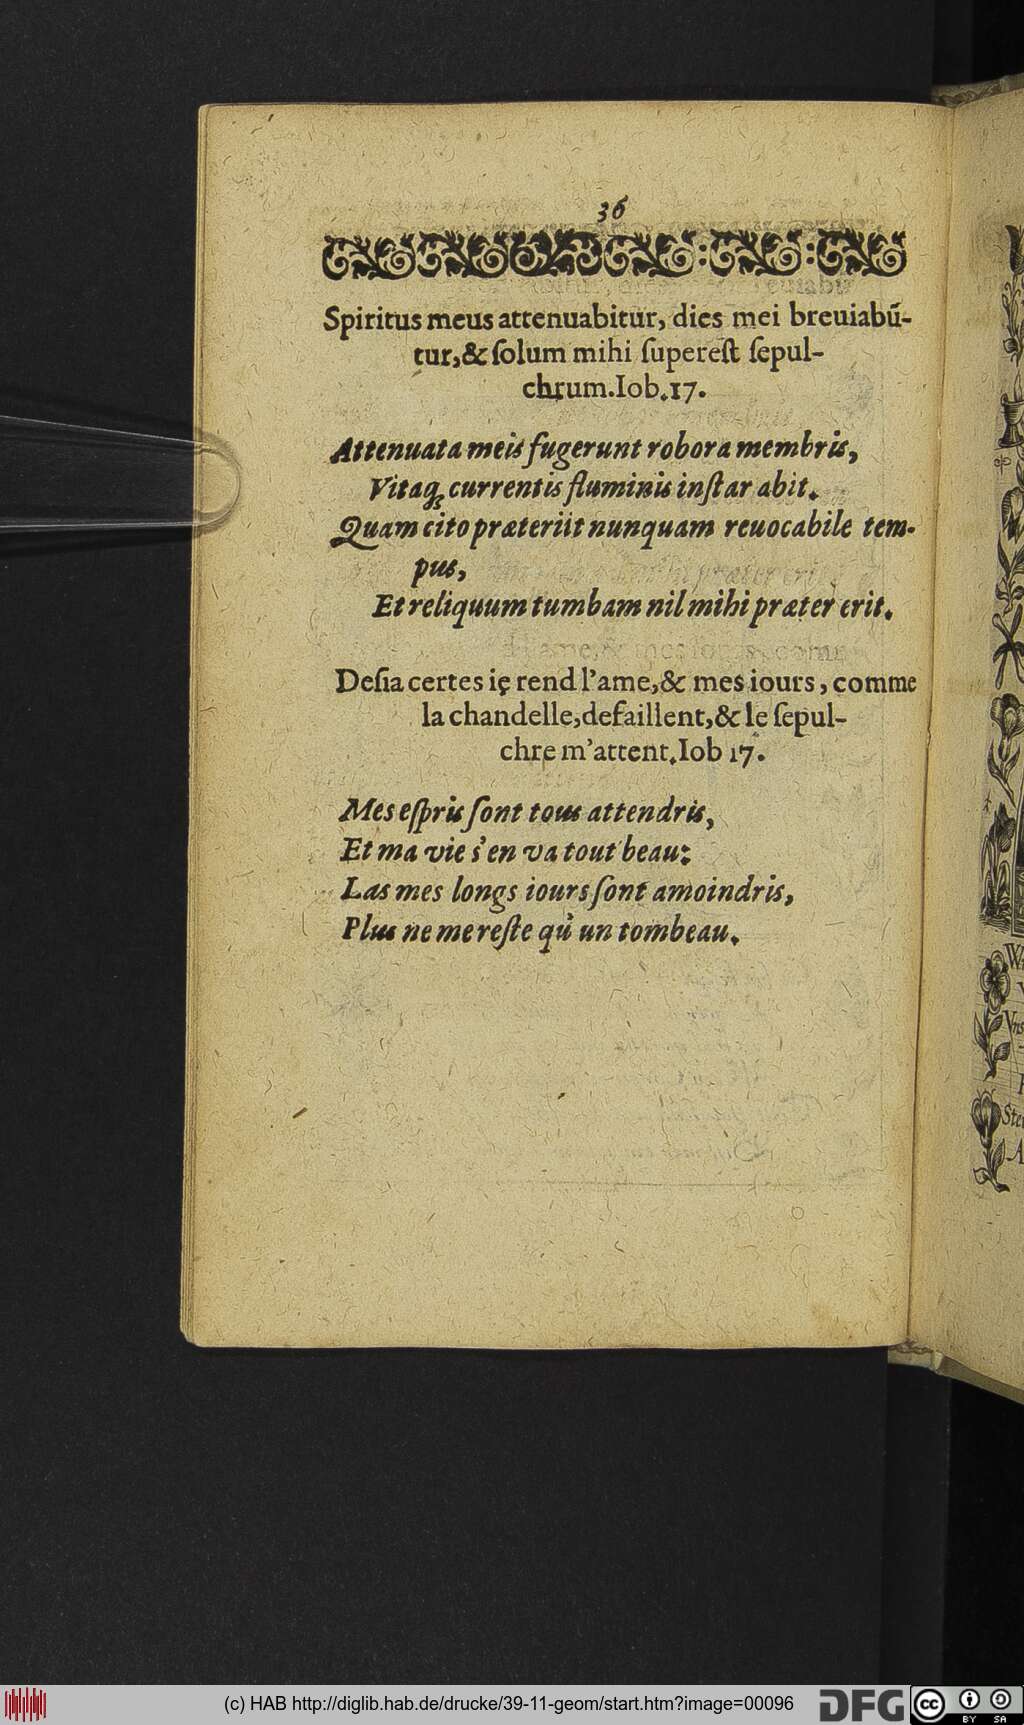 36
Spiritus meus attenuabitur, dies mei breuiabū-
tur,& ſolum mihi ſupereſt ſepul-
chrum.Iob.17.
Attenuata meis fugerunt robora membris,
Vitaq; currentis fluminis inſtar abit.
Quam cito præteriit nunquam reuocabile tem-
pus,
Et reliquum tumbam nil mihi præter erit.
Deſia certes ie rend l'ame,& mes iours, comme
la chandelle,defaillent,& le ſepul-
chre m'attent.Iob 17.
Mes eſpris ſont tous attendris,
Et ma vie s'en va tout beau:
Las mes longs iours ſont amoindris,
Plus ne me reſte qu'un tombeau.
(c) HAB http://diglib.hab.de/drucke/39-11-geom/start.htm?image=00096
DFG
cc
BY SA